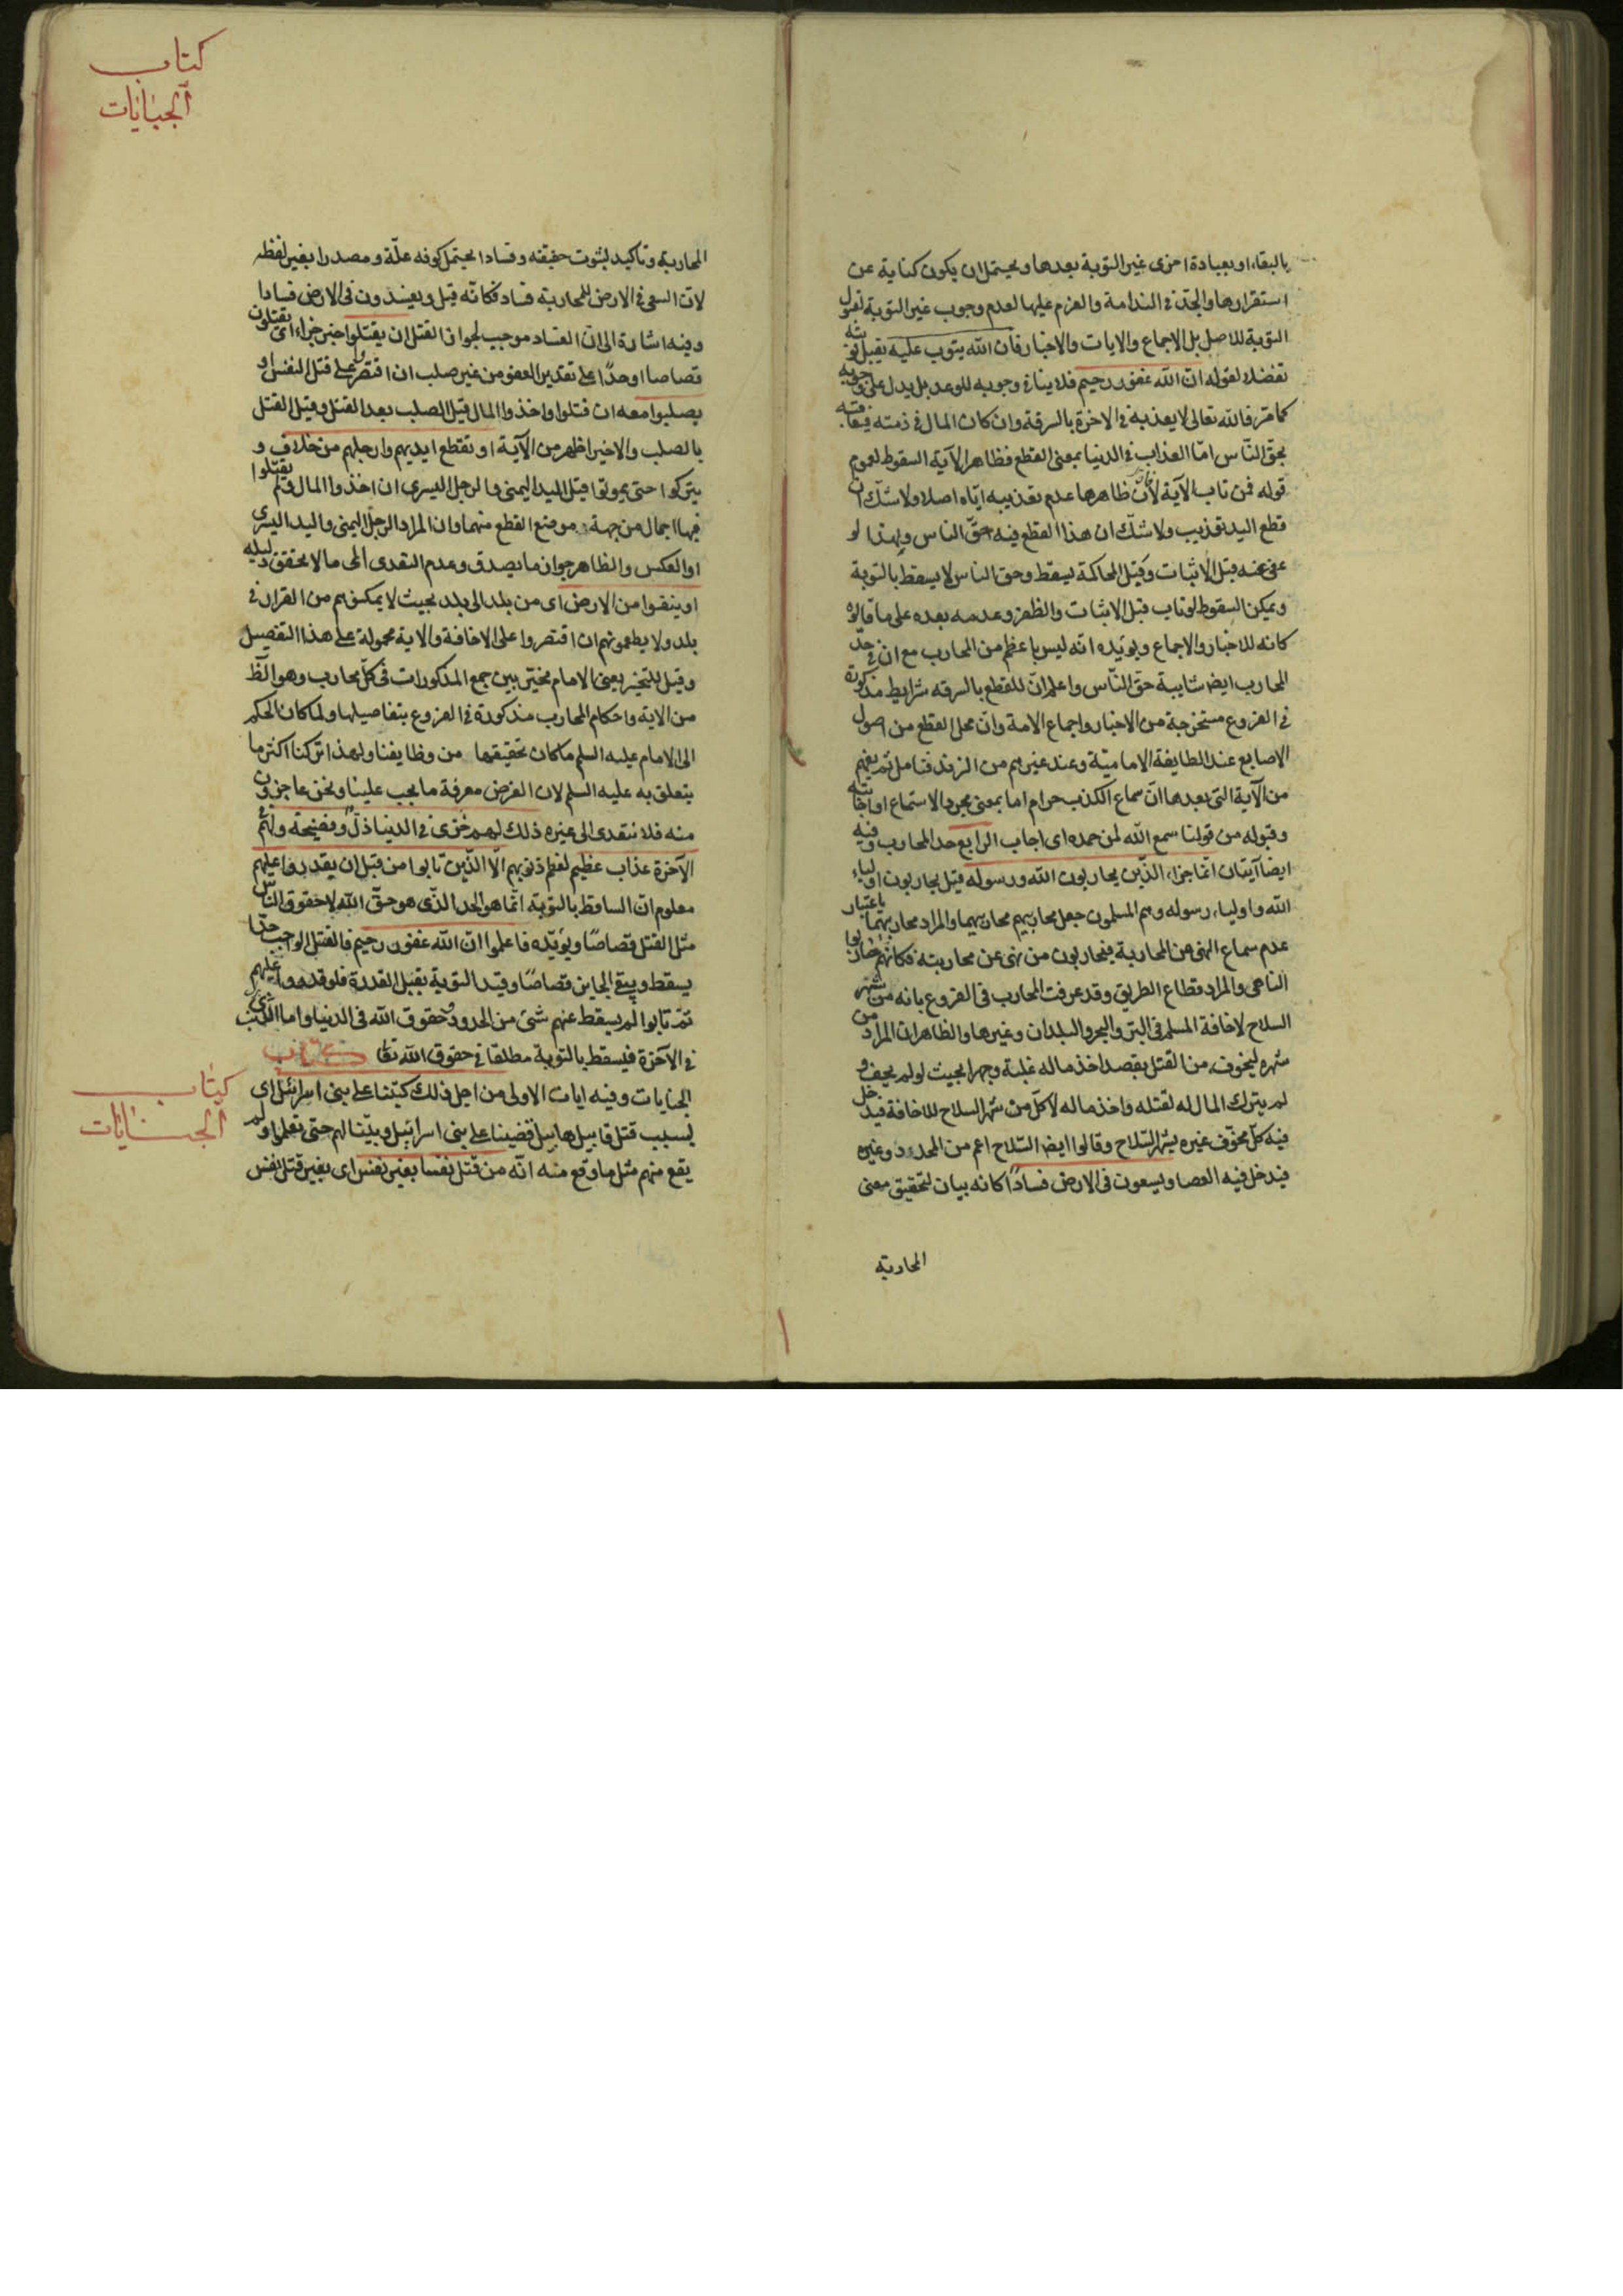 بالبقاء او بعبادة اخرى غير التوبة بعدها ويحتمل ان يكون كناية عن
استقرارها والجد في الندامة والعزم عليها لعدم وجوب غير التوبة لقبول
التوبة للاصل بل الاجماع والايات والاخبار فان الله يتوب عليه يقبل توبته
تفضلا لقوله ان الله غفور رحيم فلا ينافي وجوبه للوعد بل يدل على وجوبه
كما مر فالله تعالى لا يعذبه في الاخرة بالسرقة وان كان المال في ذمته فيعاقبه
بحق الناس اما العذاب في الدنيا بمعنى القطع فظاهر الآية السقوط لعموم
قوله فمن تاب الآية لأن ظاهرها عدم تعذيبه اياه اصلا ولا شك ان
قطع اليد تعذيب ولا شك ان هذا القطع فيه حق الناس ولهذا لو
عفى عنه قبل الاثبات وقبل المحاكمة يسقط وحق الناس لا يسقط بالتوبة
ويمكن السقوط لو تاب قبل الاثبات والظفر وعدمه بعده على ما قالوه
كانه للاخبار والاجماع ويؤيده انه ليس باعظم من المحارب مع ان في حد
المحارب ايضا شايبة حق الناس واعلم ان للقطع بالسرقه شرايط مذكورة
في الفروع مستخرجة من الاخبار واجماع الامة وان محل القطع من اصول
الاصابع عند الطايفة الامامية وعند غيرهم من الزند فتامل ثم يفهم
من الآية التي بعدها ان سماع الكذب حرام اما بمعنى مجرد الاستماع او اجابته
وقبوله من قولنا سمع الله لمن حمده اى اجاب الرابع حد المحارب وفيه
ايضا آيتان انما جزاء الذين يحاربون الله ورسوله قيل يحاربون اولياء
الله واولياء رسوله وهم المسلمون جعل محاربتهم محاربتهما والمراد محاربتهما باعتبار
عدم سماع النهى عن المحاربة فيحاربون من نهى عن محاربته فكانهم حاربوا
الناهى والمراد قطاع الطريق وقد عرفت المحارب فى الفروع بانه من شهر
السلاح لاخافة المسلم فى البر والبحر والبلدان وغيرها والظاهر ان المراد من
شهره ليخوف من القتل بقصد اخذ ماله غلبة وجهرا بحيث لو لم يخف و
لم يترك المال له لقتله واخذ ماله لا كل من شهر السلاح للاخافة فيدخل
فيه كل مخوف غيره بشهر السلاح وقالوا ايضا السلاح اعم من المحدد وغيره
فيدخل فيه العصا ويسعون فى الارض فسادا كانه بيان لتحقيق معنى
المحاربة
كتاب
الجنايات
المحاربة وتاكيد لثبوت حقيقته وفسادا يحتمل كونه علة ومصدرا بغير لفظه
لان السعى في الارض للمحاربة فساد فكانه قيل ويفسدون فى الارض فسادا
وفيه اشارة الى ان الفساد موجب لجواز القتل ان يقتلوا خبر جزاء اى يقتلون
قصاصا او حدا على تقدير العفو من غير صلب ان اقتصروا على قتل النفس او
يصلبوا معه ان قتلوا واخذوا المال قيل الصلب بعد القتل وقيل القتل
بالصلب والاخير اظهر من الآية او تقطع ايديهم وارجلهم من خلاف و
يتركوا حتى يموتوا قيل اليد اليمنى والرجل اليسرى ان اخذوا المال ولم يقتلوا
فيها اجمال من جهة موضع القطع منهما وان المراد الرجل اليمنى واليد اليسرى
او العكس والظاهر جواز ما يصدق وعدم التعدى الى ما لا يتحقق دليله
او ينفوا من الارض اى من بلد الى بلد بحيث لا يمكنهم من القرار في
بلد ولا يطعمونهم ان اقتصروا على الاخافة والاية محمولة على هذا التفصيل
وقيل للتخيير يعنى الامام مخير بين جمع المذكورات فى كل محارب وهو الظ
من الاية واحكام المحارب مذكورة في الفروع بتفاصيلها ولما كان الحكم
الى الامام عليه السلم ما كان تحقيقها من وظايفنا ولهذا تركنا اكثر ما
يتعلق به عليه السلم لان الغرض معرفة ما يجب علينا ونحن عاجزون
منه فلا نتعدى الى غيره ذلك لهم خزى في الدنيا ذل وفضيحة ولهم في
الآخرة عذاب عظيم لعظم ذنوبهم الا الذين تابوا من قبل ان يقدروا عليهم
معلوم ان الساقط بالتوبة انما هو الحد الذى هو حق الله لا حقوق الناس
مثل القتل قصاصا ويؤيده فاعلموا ان الله غفور رحيم فالقتل الواجب حدا
يسقط ويبقى الجايز قصاصا وقيد التوبة بقبل القدرة فلو قدروا عليهم
ثم تابوا لم يسقط عنهم شئ من الحدود وحقوق الله فى الدنيا واما الذى
في الآخرة فيسقط بالتوبة مطلقا في حقوق الله تعا كتاب
كتاب
الجنايات
الجنايات وفيه ايات الاولى من اجل ذلك كتبنا على بنى اسرائيل اى
بسبب قتل قابيل هابيل قضينا على بنى اسرائيل وبينا لهم حتى تعلموا ولم
يقع منهم مثل ما وقع منه انه من قتل نفسا بغير نفس اى بغير قتل نفس